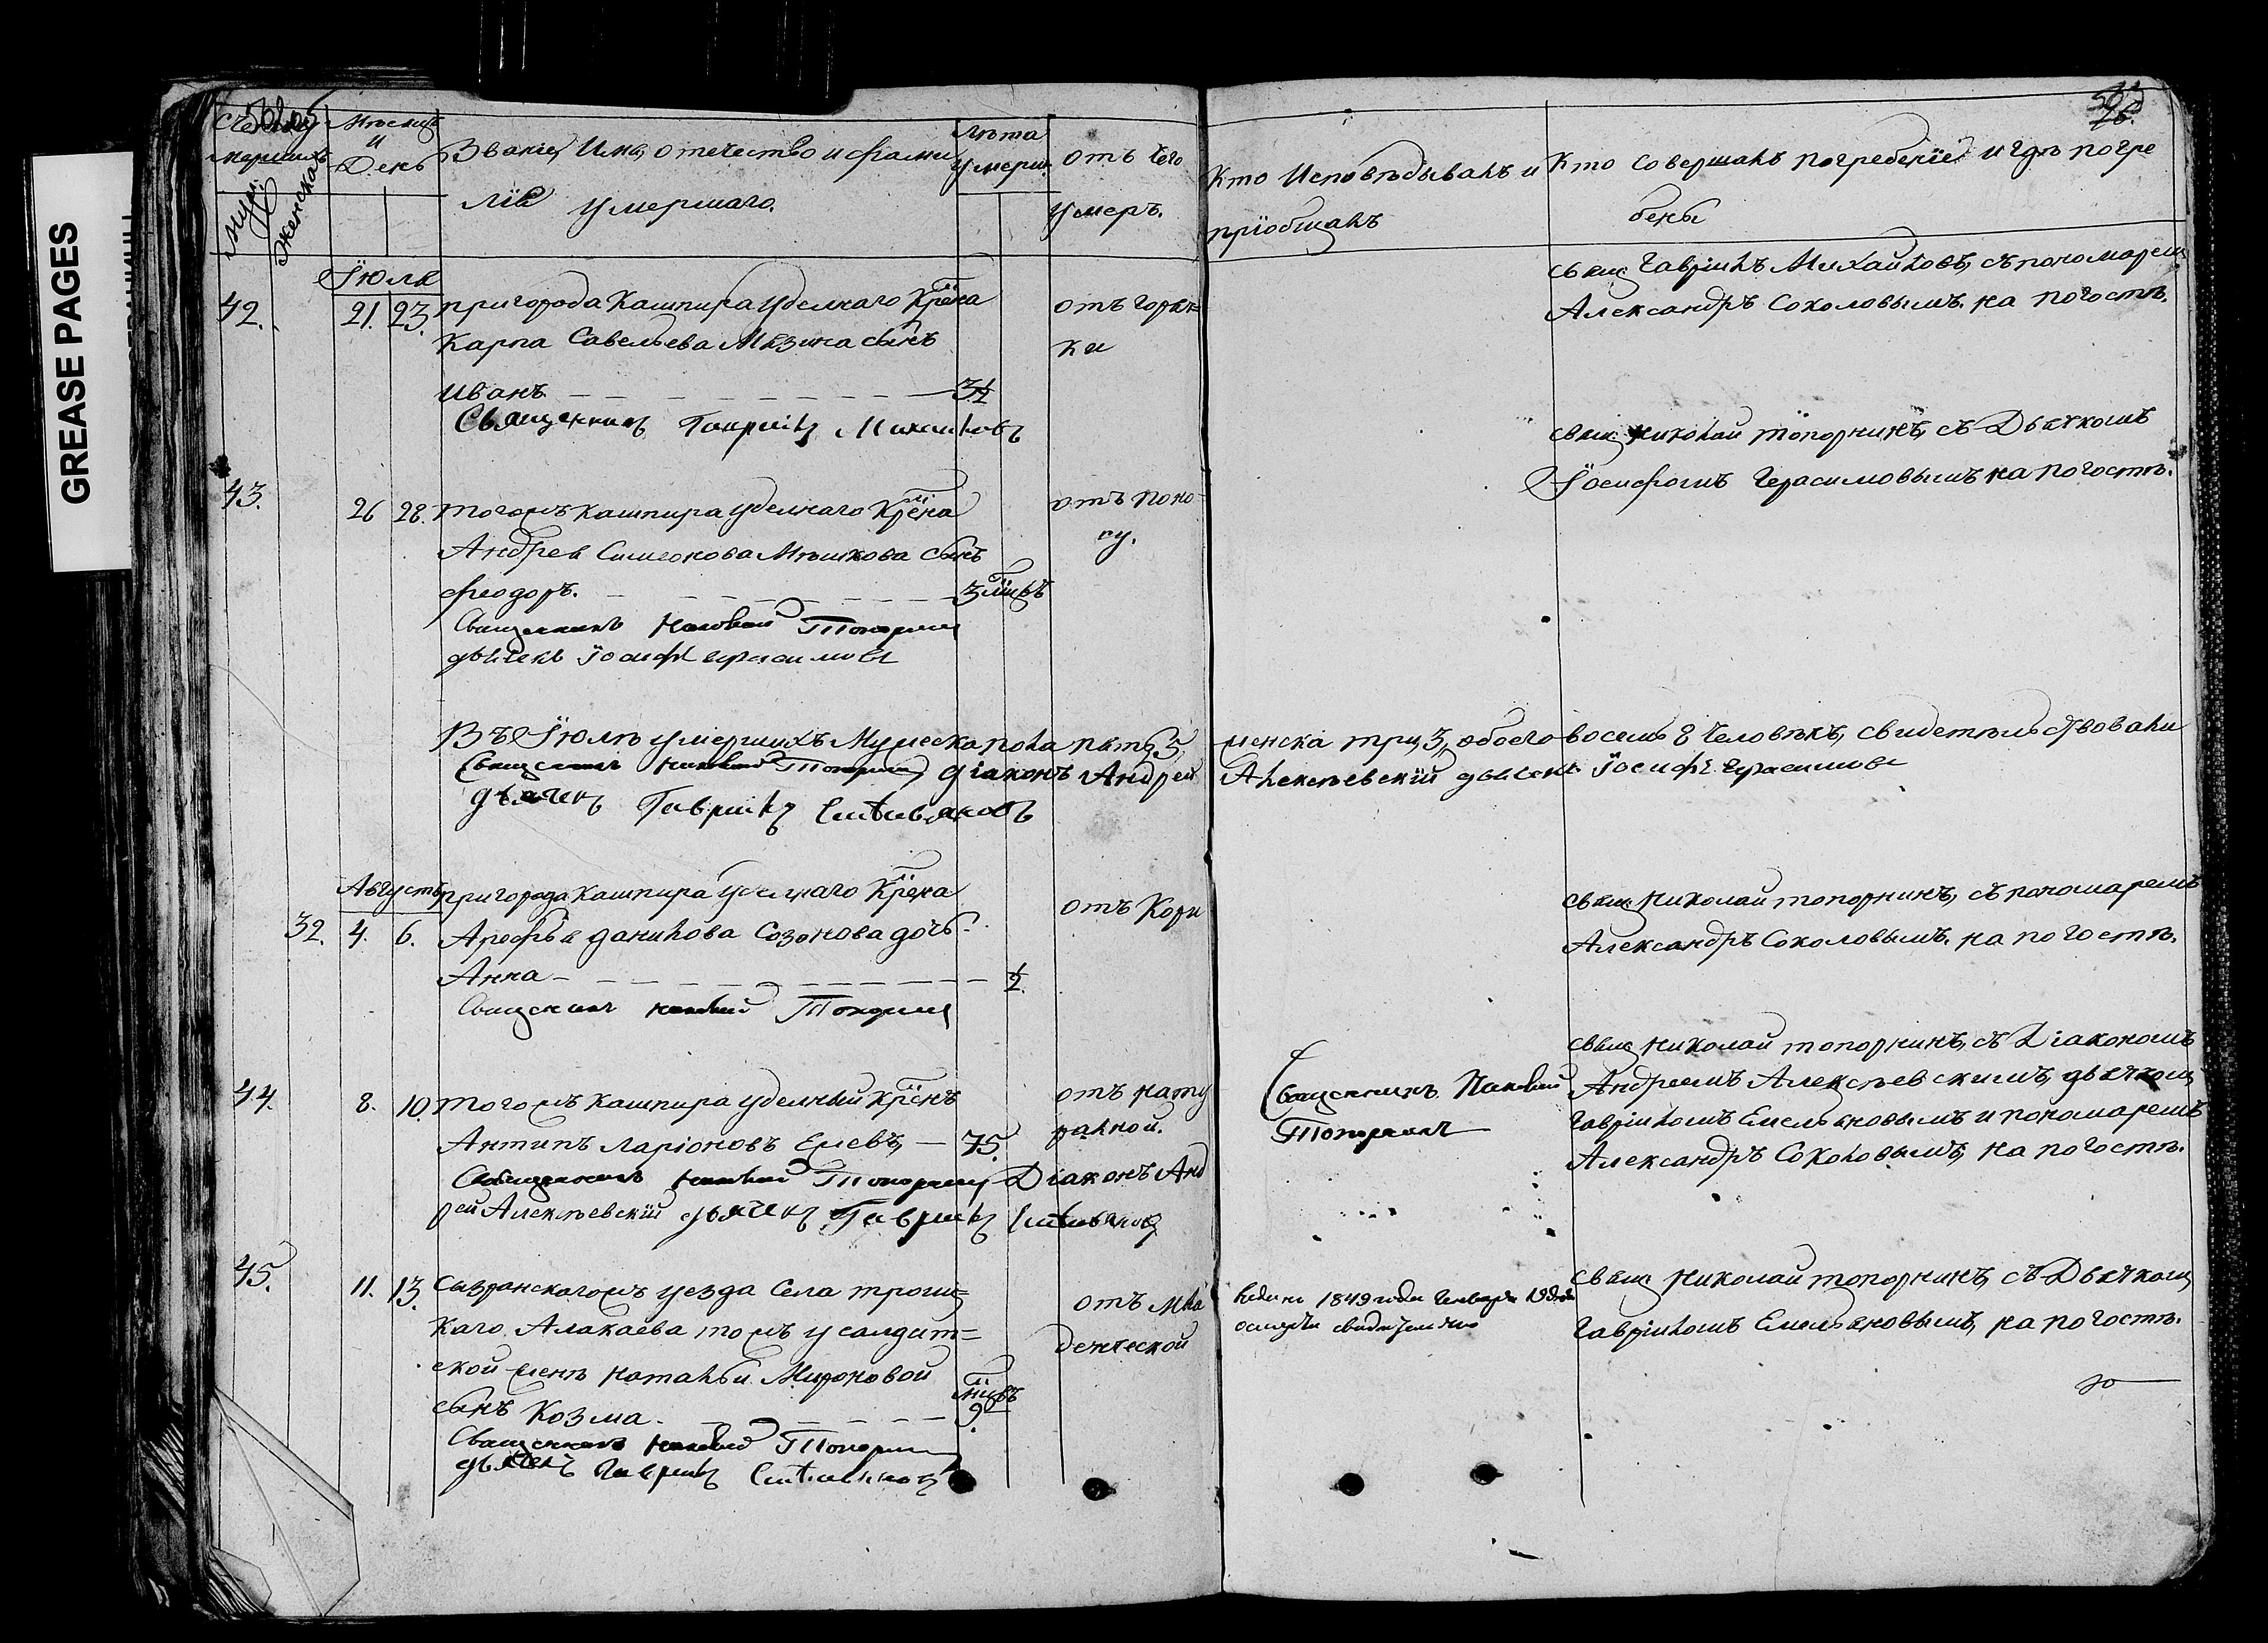 GREASE PAGES
Счетъ умершихъ
Муж:
Женска
Мѣсяцъ
и
День
Званіе, Имя, отечество и фами
лія умершаго.
Лѣта
умерш.
отъ чего
умеръ.
Кто Исповѣдывалъ и
пріобщалъ
Кто совершалъ погребеніе и гдѣ погре
бены
Іюля
42.
21. 23.
пригорода Кашпира уделнаго Крена
Карпа Савельева Мязина сынъ
Иванъ
отъ горяч=
ки
Священникъ Гавриилъ Михаиловъ
свящ Гавріилъ Михайловъ, съ пономарем
Александръ Соколовымъ. на погостѣ.
43.
26 28.
тогожъ Кашпира уделнаго Крена
Андрея Симеонова Мѣшкова сынъ
Феодоръ.
3 мцвъ
отъ поно
су.
Священникъ Николай Топорнин
дьячекъ Іосифъ Герасимовъ
свящ Николай топорнинъ, съ Дьячкомъ
Іосифомъ Герасимовымъ на погостѣ.
Въ Іюлѣ умершихъ Мужеска пола пять 5, женска три 3, обоего восемь 8 человѣкъ, свидетельствовали
Священникъ Николай Топорнин діаконъ Андрей Алексѣевскій дьячекъ Іосифъ Герасимовъ
дьячекъ Гавриилъ Емельяновъ
Августъ
32. 4. 6.
пригорода Кашпира уделнаго Крена
Арефья Данилова Созонова дочь
Анна
отъ Кори
Священникъ Николай Топорнин
свящ Николай топорнинъ, съ пономаремъ
Александръ Соколовымъ. на погостѣ.
44.
8. 10.
тогожъ Кашпира уделный Кренъ
Антипъ Ларіоновъ Елевъ,
75.
отъ нату
ралной.
Священникъ Николай Топорнин Діаконъ Анд
рей Алексѣевскій дьячекъ Гавриилъ Емельяновъ
Священникъ Николай
Топорнинъ
свящ Николай топорнинъ, съ Діакономъ
Андреемъ Алексѣевскимъ, дьячком
Гавріиломъ Емельяновымъ и пономаремъ
Александръ Соколовымъ, на погостѣ.
45.
11. 13.
Сызранскагожъ уезда Села троиц=
каго Алакаева тожъ у салдат=
ской жены Натальи Мироновой
сынъ Козма.
мцвъ
9.
отъ мла
денческой
Священникъ Николай Топорнин
дьячекъ Гавриилъ Емельяновъ
1849 года Генваря 19 дня
свящ Николай топорнинъ, съ Дьячком
Гавріиломъ Емельяновымъ, на погостѣ.